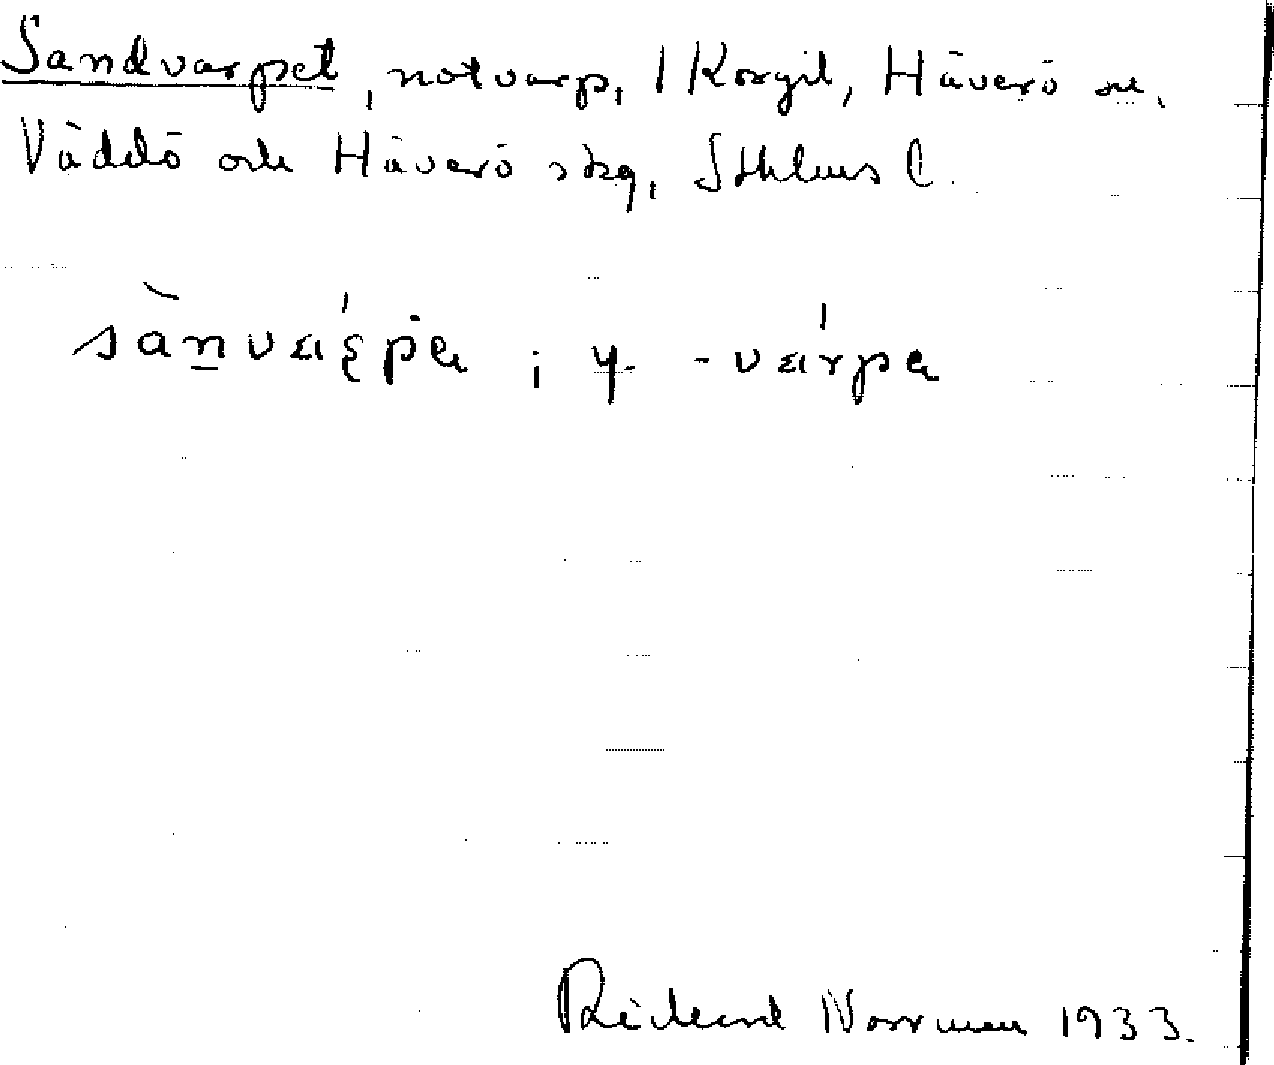 Sandvarpet, notvarp, 1 Korgil, Häverö sn,
Väddö och Häverö skg, Sthlms l.
sànvaρ́pa ; y. -va̍rpa
Rickard Norrman 1933.